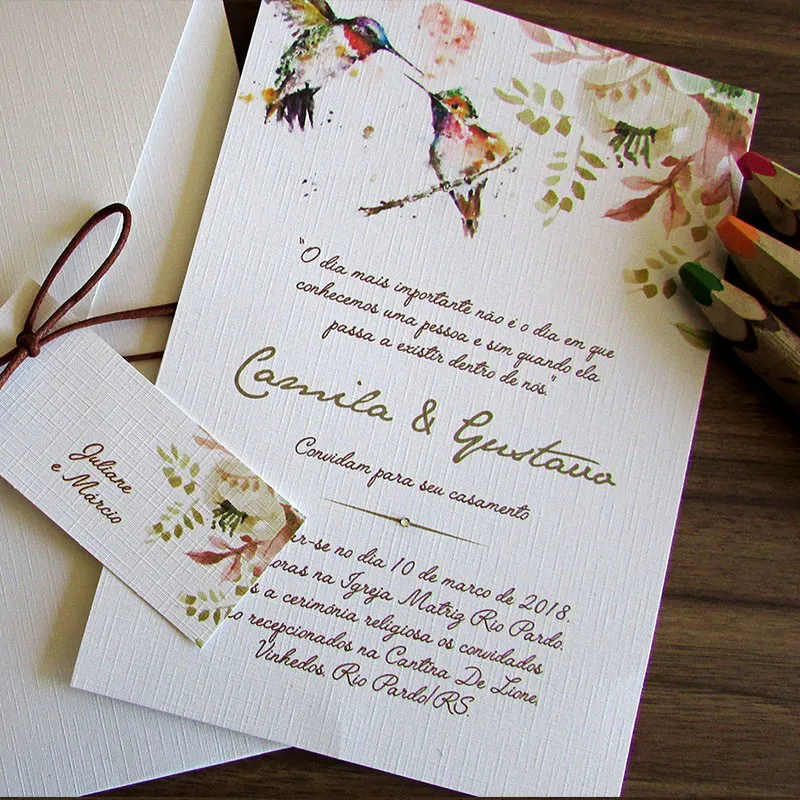 "O dia mais importante não é o dia em que
conhecemos uma pessoa e sim quando ela
passa a existir dentro de nós."
Camila & Gustavo
Convidam para seu casamento
no dia 10 de março de 2018.
na Igreja Matriz Rio Pardo.
a cerimônia religiosa os convidados
recepcionados na Cantina De Lione,
Vinhedos, Rio Pardo/RS.
Juliane
e Márcio